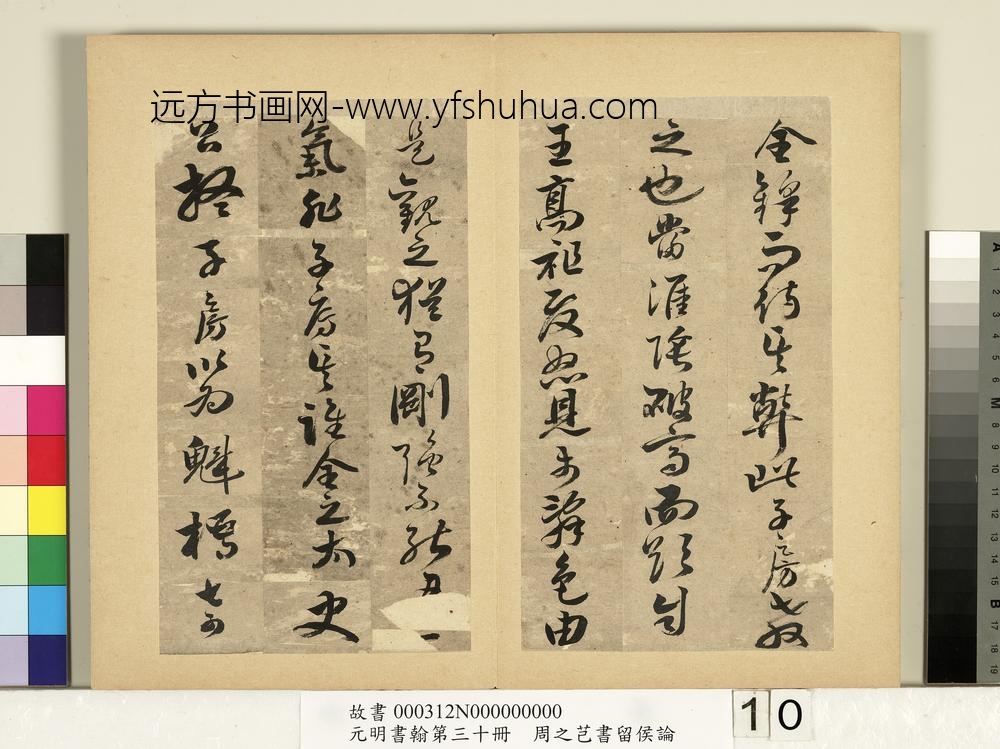 远方书画网-www.yfshuhua.com
全鋒而待其弊此子房教
之也當淮陰破齊而欲自
王高祖發怒見於辭色由
是觀之猶有剛強不能
氣非子房其誰全之太史
公疑子房以為魁梧奇
故書 000312N000000000
元明書翰第三十冊 周之芑書留侯論
10
A 1 2 3 4 5 6 M 8 9 10 11 12 13 14 15 B 17 18 19